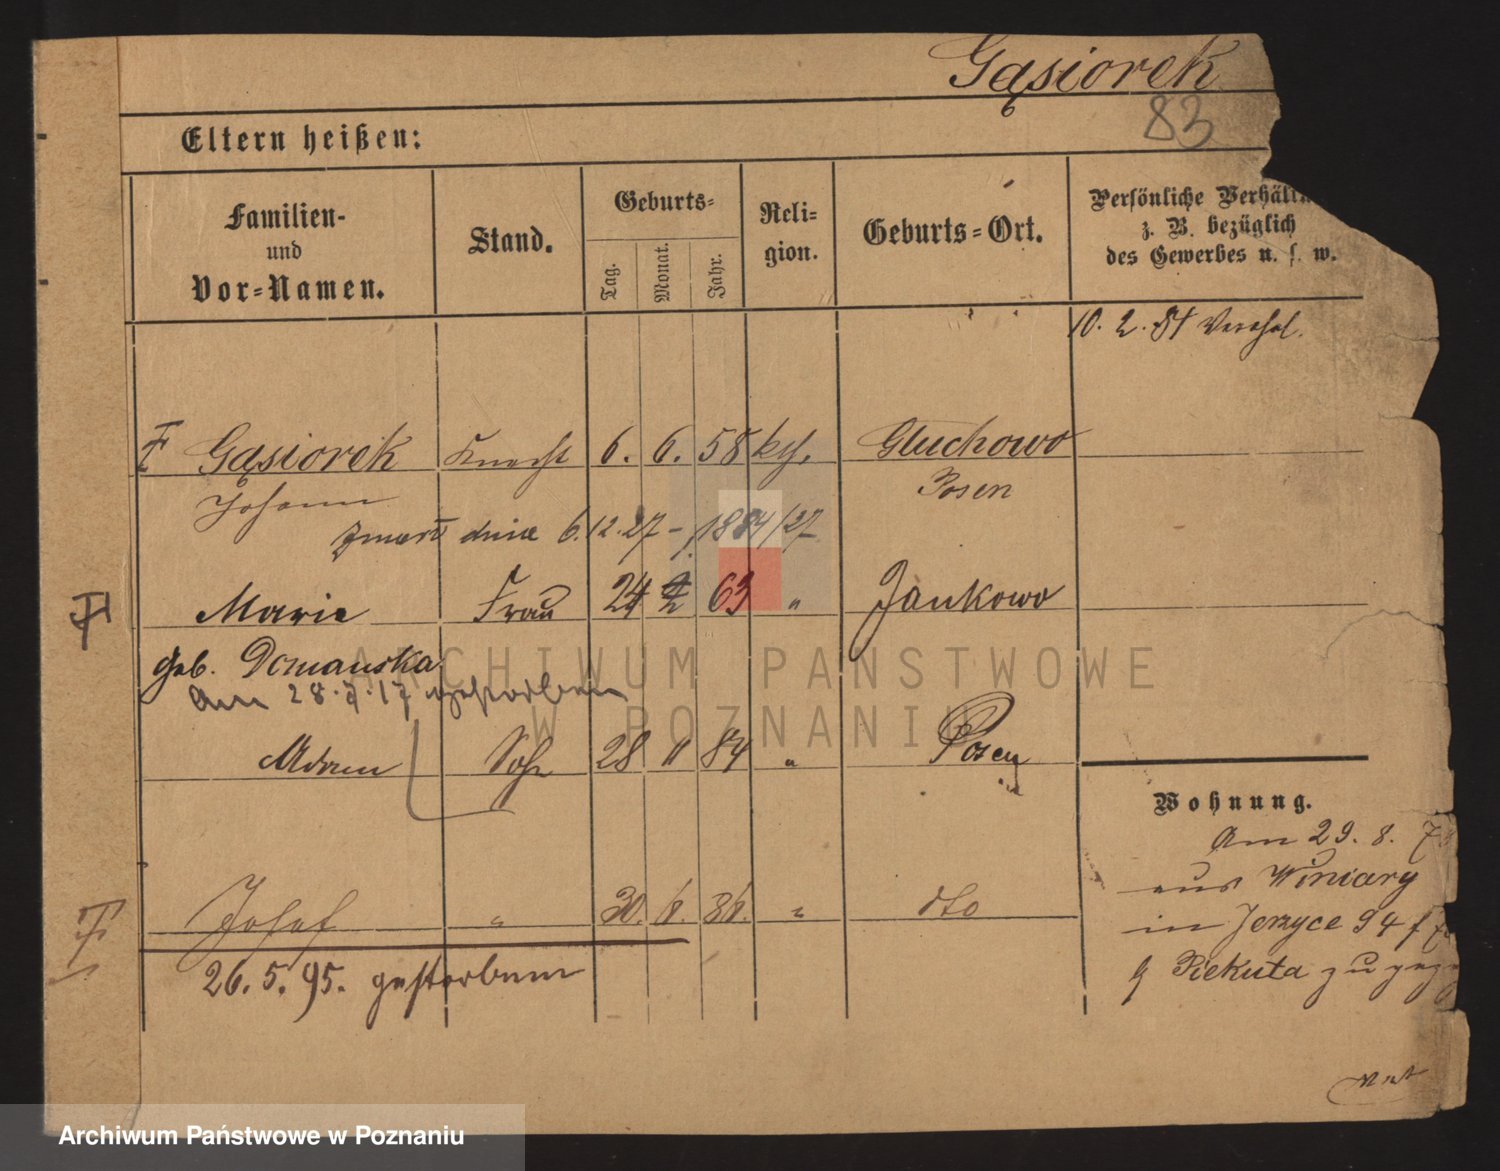 Gąsiorek
83
Eltern heißen:
Familien-
und
Vor-Namen.
Stand.
Geburts-
Tag.
Monat.
Jahr.
Reli-
gion.
Geburts-Ort.
Persönliche
z. B. bezüglich
des Gewerbes u. s. w.
10. 2. 84
Gąsiorek Knecht 6. 6. 58 kth. Gluchowo
Johann Posen
Zmarł dnia 6.12.27 - 1884/27
Marie Frau 24 2 63 " Jankowo
geb. Domanska
Am 28.7.17 gestorben
Adam Sohn 28 11 84 " Posen
Josef " 30. 6. 86. " dto
26. 5. 95. gestorben
Wohnung.
Am 29. 8.
aus Winiary
in Jerzyce 94
Piekuta
ARCHIWUM PAŃSTWOWE
W POZNANIU
Archiwum Państwowe w Poznaniu